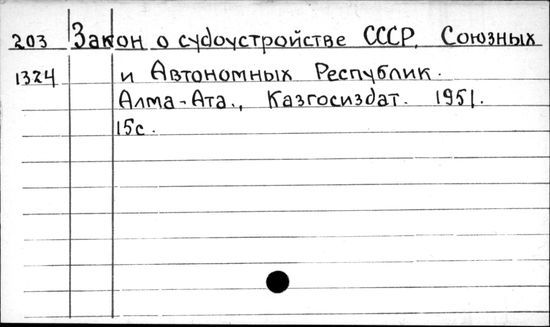 203 Закон о судоустройстве СССР, Союзных
1324 и Автономных Республик.
Алма-Ата., Казгосиздат. 1951.
15с.